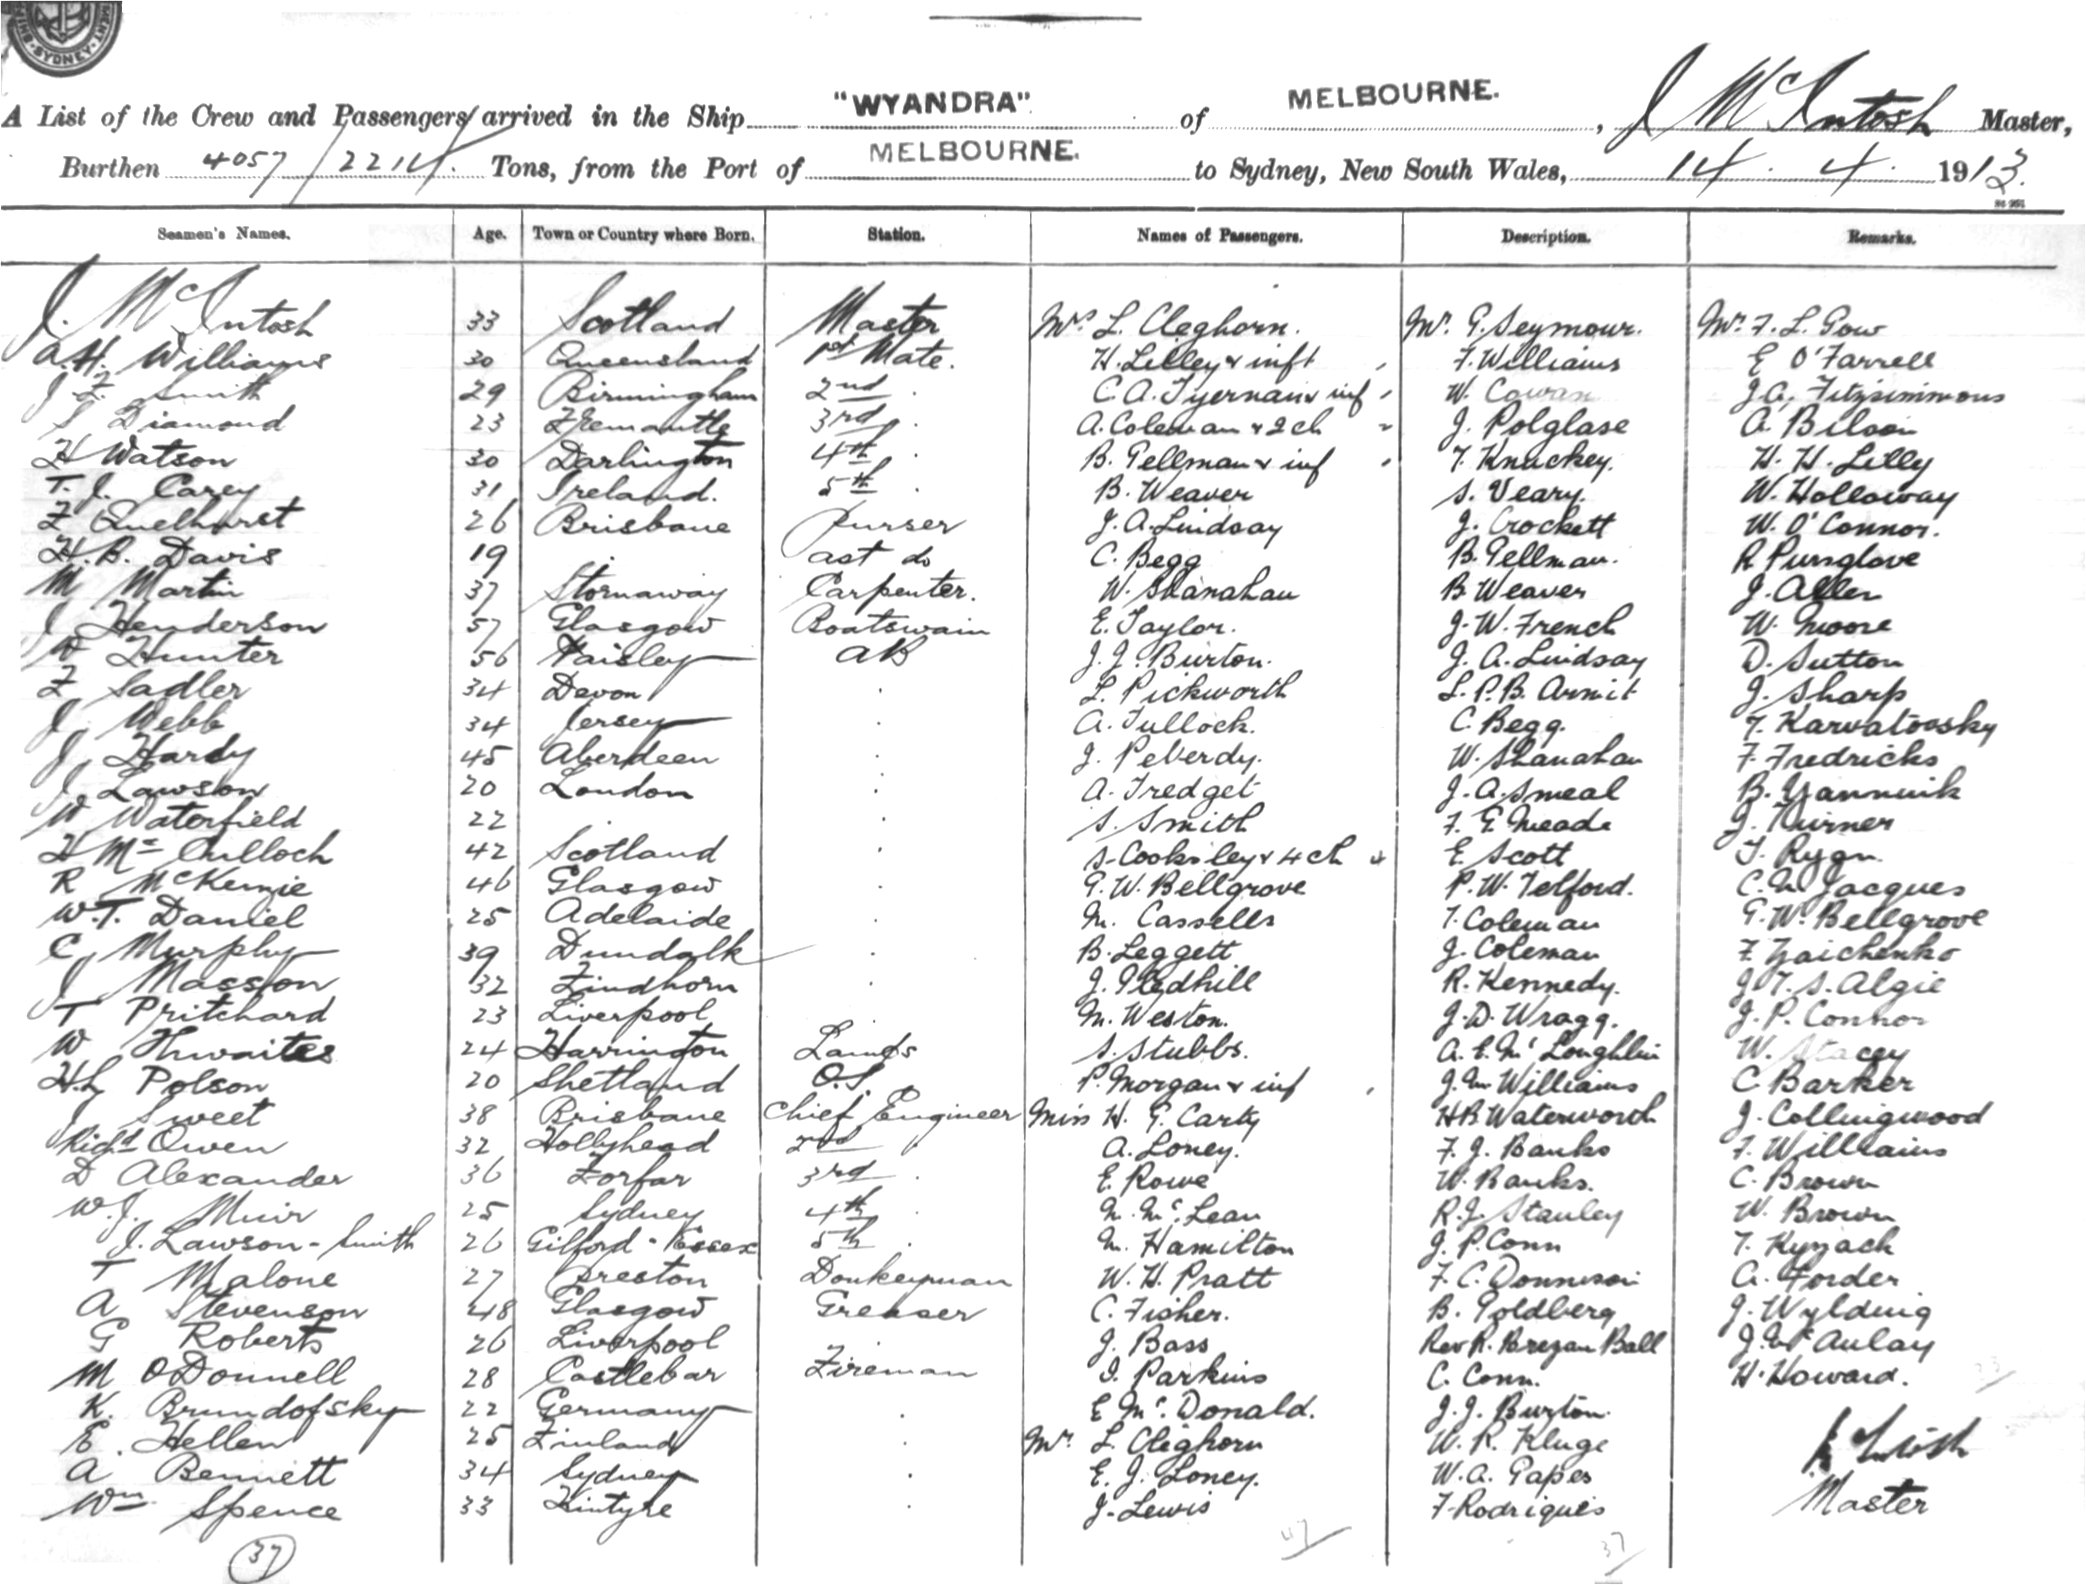 SYDNEY
A List of the Crew and Passengers arrived in the Ship "WYANDRA" of MELBOURNE. , J McIntosh Master,
Burthen 4057/2214. Tons, from the Port of MELBOURNE. to Sydney, New South Wales, 14. 4. 1913.
Seamen's Names. Age. Town or Country where Born. Station. Names of Passengers. Description. Remarks.
J. McIntosh 33 Scotland Master Mrs L. Cleghorn. Mr. G. Seymour. Mr. F. L. Gow
A.H. Williams 30 Queensland 1st Mate. H. Lilley & inft F. Williams E O'Farrell
J F Smith 29 Birmingham 2nd C. A. Tyernan & inf W. Cowan J A. Fitzsimmons
S Diamond 23 Fremantle 3rd A. Coleman & 2 ch J. Polglase A. Bilson
H Watson 30 Darlington 4th B. Gellman & inf T. Knuckey. H. H. Lilly
T. J. Carey 31 Ireland. 5th B. Weaver S. Veary. W. Holloway
F Quelhurst 26 Brisbane Purser J. A. Lindsay J. Crockett W. O'Connor.
H. B. Davis 19 . ast do C. Begg B. Gellman. R Pursglove
M Martin 37 Stornaway Carpenter. W. Shanahan B Weaver J. Allen
J Henderson 57 Glasgow Boatswain E. Taylor. J. W. French W. Moore
D Hunter 56 Paisley AB J. J. Burton. J. A. Lindsay D. Sutton
F Sadler 34 Devon . L. Pickworth L. P. B. Armit J. Sharp
J Webb 34 Jersey . A. Tullock. C. Begg. T. Karvatovsky
J Hardy 45 Aberdeen . J. Peverdy. W. Shanahan F. Fredricks
J Lawson 20 London . A. Tredget J. A. Smeal B. Yannuik
W Waterfield 22 . . S. Smith F. G. Meade J. Turner
H McCulloch 42 Scotland . S. Cooksley & 4 ch E. Scott T. Rygn.
R McKenzie 46 Glasgow . G. W. Bellgrove P. W. Telford. C. M Jacques
W.T. Daniel 25 Adelaide . M. Cassells T. Coleman G. W. Bellgrove
C Murphy 39 Dundalk . B. Leggett J. Coleman F. Zaichenko
J Masson 32 Findhorn . J. Gledhill R. Kennedy. J. T. S. Algie
T Pritchard 23 Liverpool . M. Weston. J. D. Wragg. J. P. Connor
W Thwaites 24 Harrington Lamps S. Stubbs. A. E. McLoughlin W. Stacey
H.L Polson 20 Shetland O.S. P. Morgan & inf J. M Williams C Barker
J Sweet 38 Brisbane Chief Engineer Miss H. G. Carty H B Waterworth J. Collingwood
Richd Owen 32 Hollyhead 2nd A. Loney. F. J. Banks F. Williams
D Alexander 36 Forfar 3rd E. Rowe W. Banks. C. Brown
W. J. Muir 25 Sydney 4th M. McLean R. J. Stanley W. Brown
J. Lawson-Smith 26 Gilford - Essex 5th M. Hamilton J. P. Conn T. Kyzack
T Malone 27 Preston Donkeyman W. H. Pratt F. C. Donnison A. Forder
A Stevenson 48 Glasgow Greaser C. Fisher. B. Goldberg J. Wylding
G Roberts 26 Liverpool J. Bass Rev R. Bregan Ball J. McAulay
M O'Donnell 28 Castlebar Fireman I. Parkins C. Conn. H. Howard.
K. Brundofsky 22 Germany . E McDonald. J. J. Burton.
E. Hellen 25 Finland . Mr. L. Cleghorn W. R. Kluge
A Bennett 34 Sydney . E. J. Loney. W. A. Gapes
Wm. Spence 33 Kintyre . J. Lewis F. Rodriques Master
37 47 37